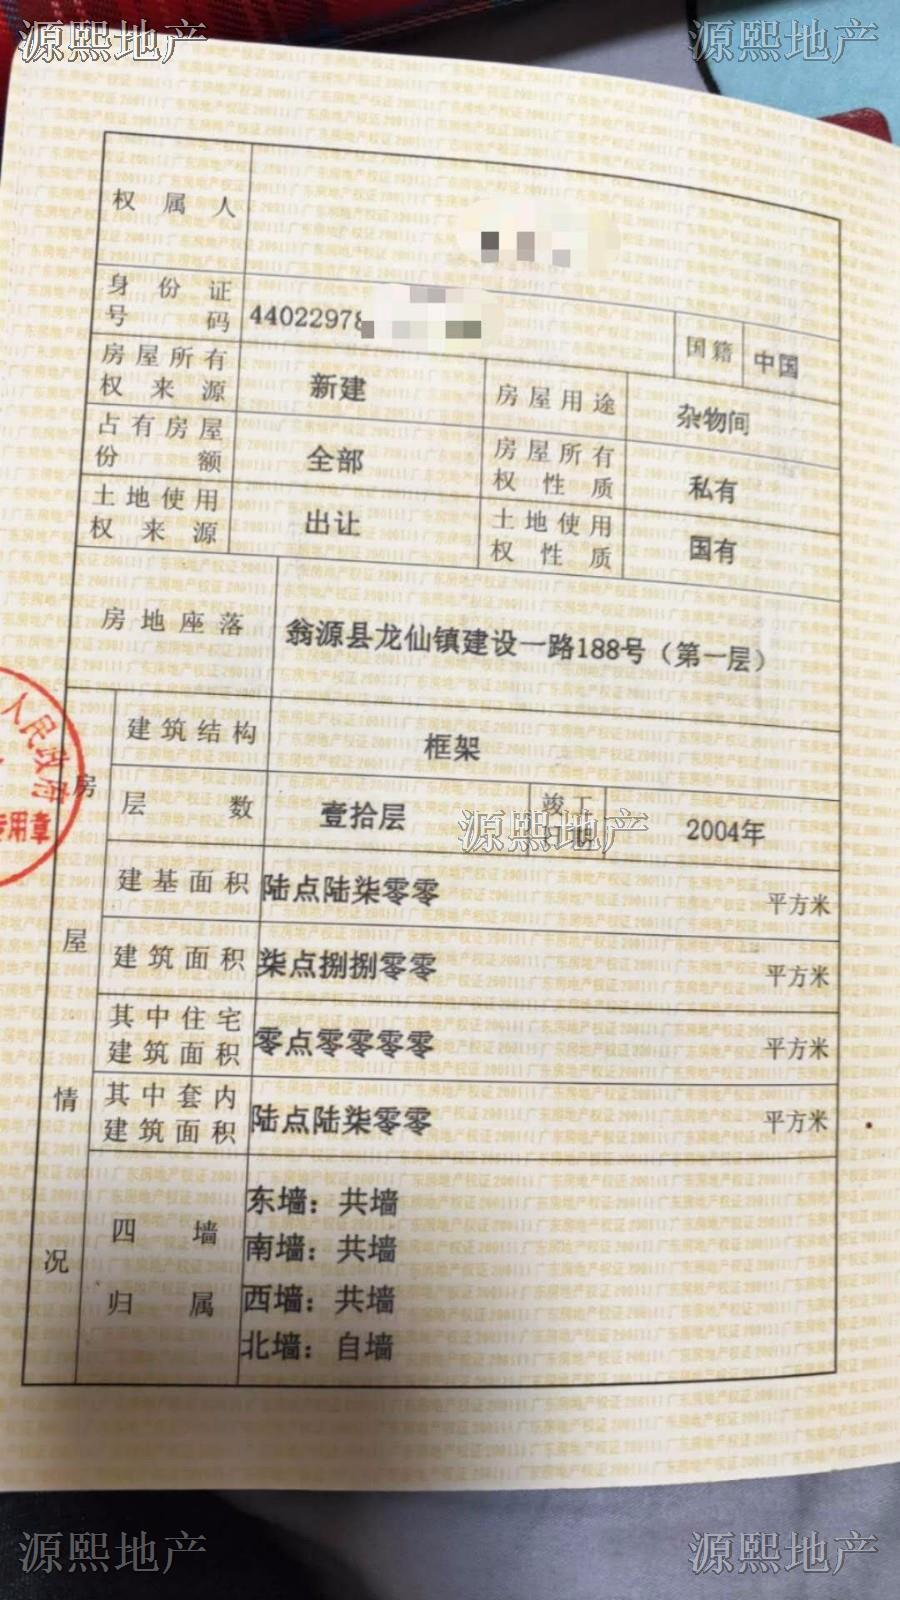 源熙地产
源熙地产
权属人
身份证号码 44022978 国籍 中国
房屋所有权来源 新建 房屋用途 杂物间
占有房屋份额 全部 房屋所有权性质 私有
土地使用权来源 出让 土地使用权性质 国有
房地座落 翁源县龙仙镇建设一路188号（第一层）
人民政府
专用章
房屋情况
建筑结构 框架
层数 壹拾层 竣工 2004年
源熙地产
建基面积 陆点陆柒零零 平方米
建筑面积 柒点捌捌零零 平方米
其中住宅建筑面积 零点零零零零 平方米
其中套内建筑面积 陆点陆柒零零 平方米
四墙归属 东墙：共墙
南墙：共墙
西墙：共墙
北墙：自墙
源熙地产
源熙地产